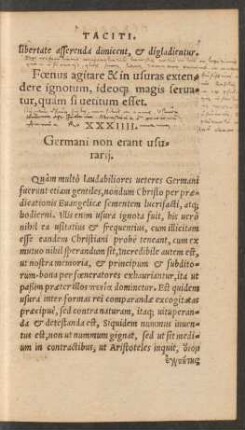 TACITI.
libertate asserenda donicent, & digladientur.
Fœnus agitare & in usuras exten
dere ignotum, ideoq; magis serua
tur, quàm si uetitum esset.
XXXIIII.
Germani non erant usu
rarij.
Quàm multò laudabiliores ueteres Germani
fuerunt etiam gentiles, nondum Christo per præ
dicationis Euangelicæ sementem lucrifacti, atq;
hodierni. Illis enim usura ignota fuit, his uerò
nihil ea usitatius & frequentius, cum illicitam
esse eandem Christiani probè teneant, cum ex
mutuo nihil sperandum sit, incredibile autem est,
ut nostra memoria, & principum & subdito-
rum bona per fœneratores exhauriantur, ita ut
passim præter illos nullus dominetur. Est quidem
usura inter formas rei comparandæ excogitatas
præcipuè, sed contra naturam, itaq; uituperan-
da, & detestanda est, Siquidem nummus inuen-
tus est, non ut nummum gignat, sed ut sit medi-
um in contractibus, ut Aristoteles inquit,